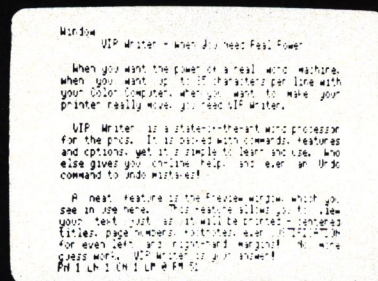 Window
VIP Writer - When You Need Real Power
When you want the power of a real word machine,
when you want up to 85 characters per line with
your Color Computer, when you want to make your
printer really move, you need VIP Writer.
VIP Writer is a state-of-the-art word processor
for the pros. It is packed with commands, features
and options, yet it is simple to learn and use. Who
else gives you on-line help, and even an Undo
command to undo mistakes!
A neat feature is the Preview window, which you
see in use here. This feature allows you to view
your text just as it will be printed - centered
titles, page numbers, footnotes, even JUSTIFICATION
for even left and right-hand margins! No more
guess work. VIP Writer is your answer!
PN 1 LN 1 CN 1